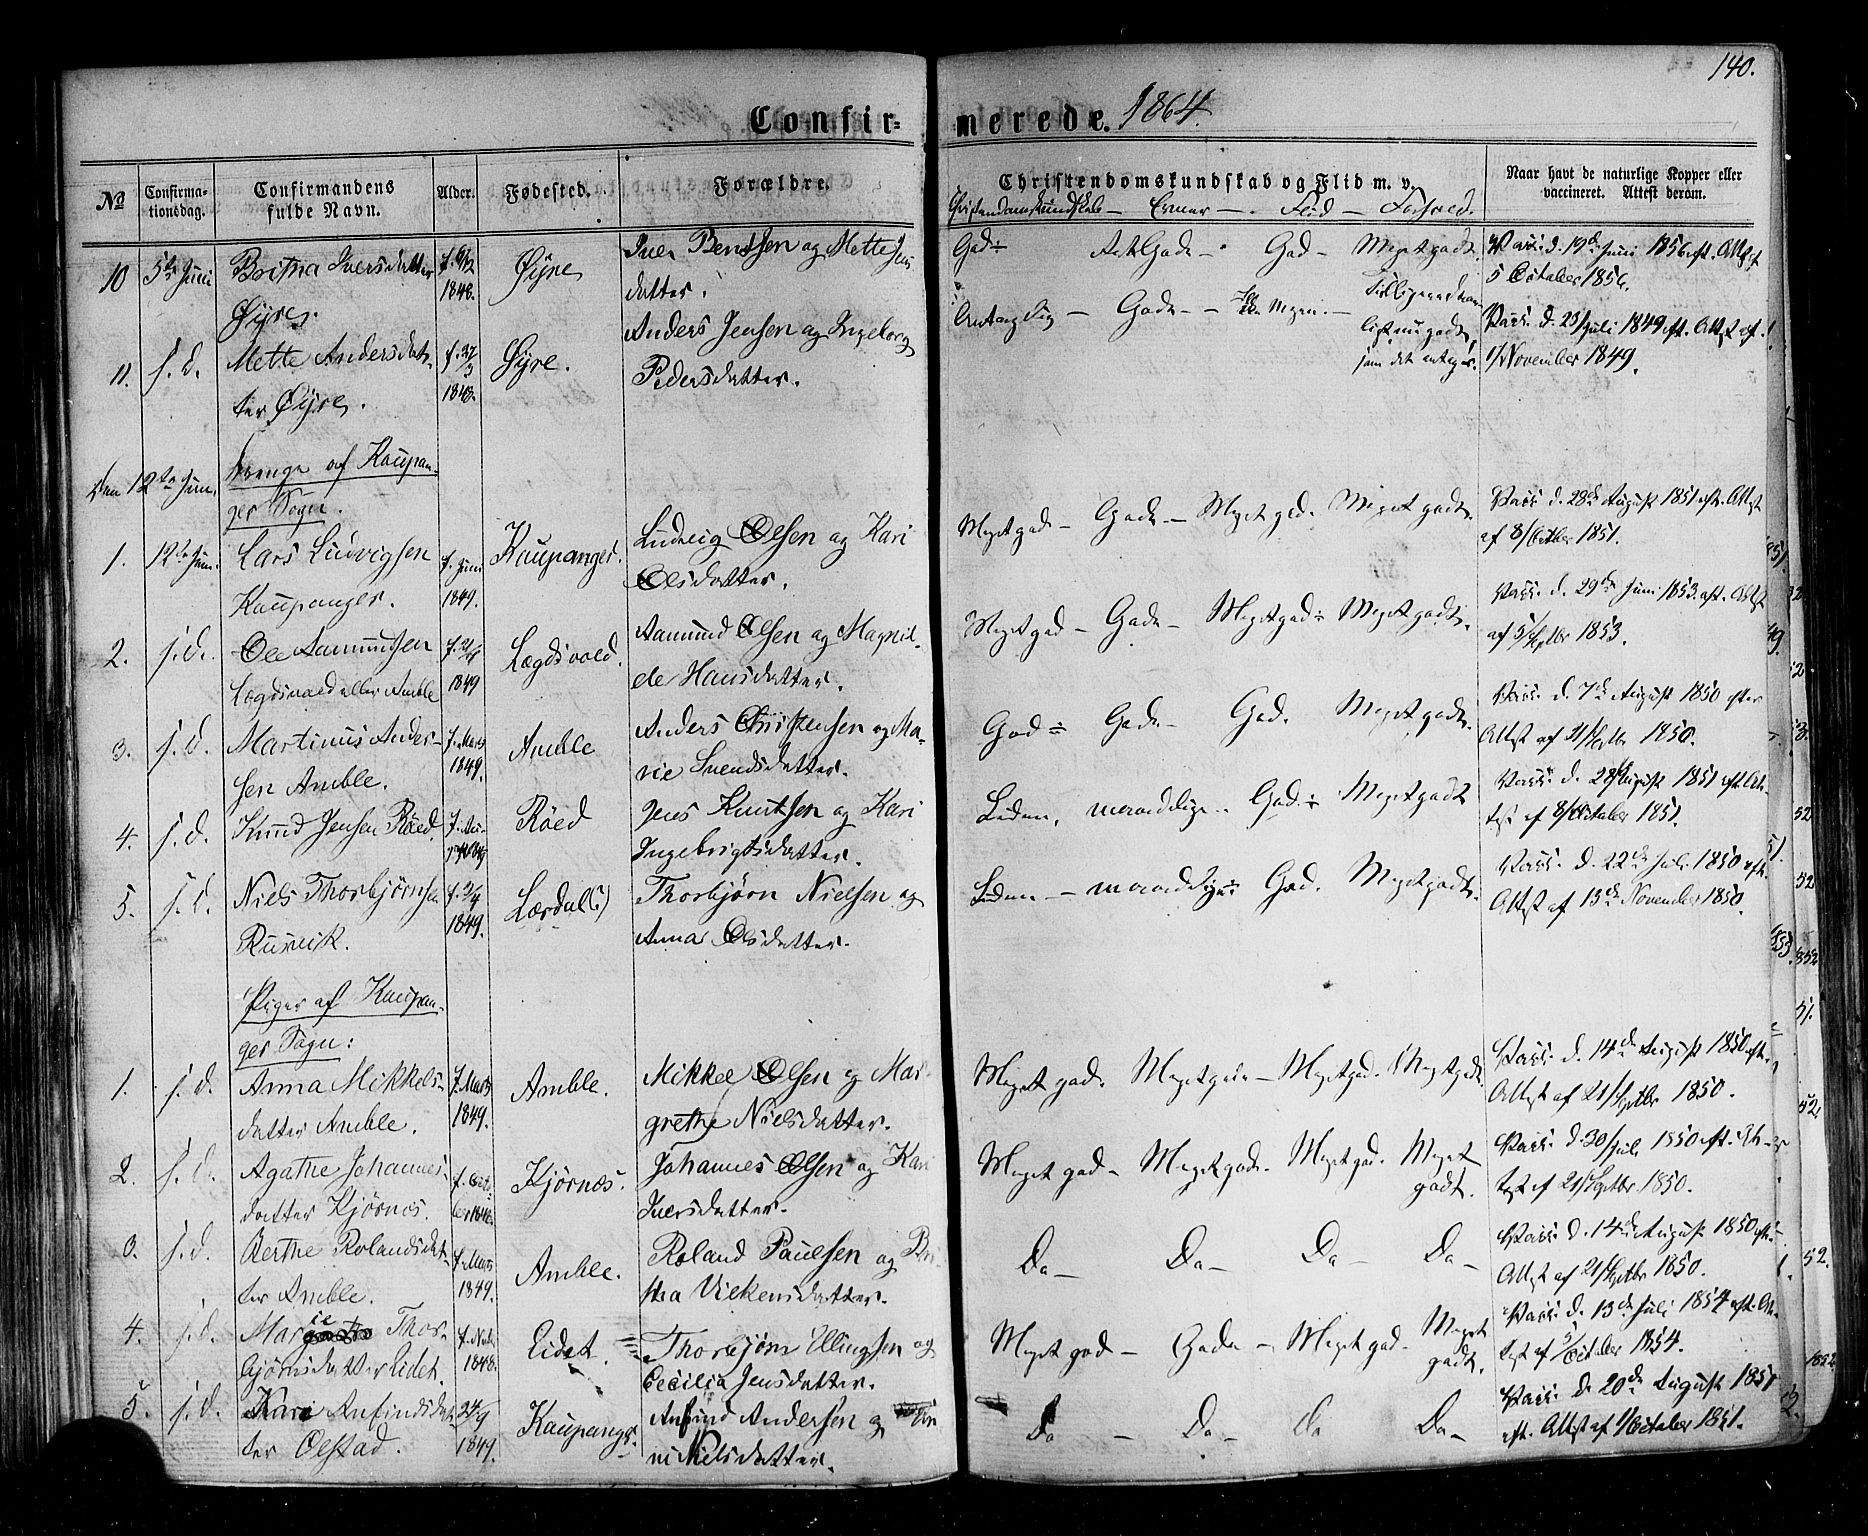 140.
Confir=
merede. 1864.
No
Confirma-
tionsdag.
Confirmandens
fulde Navn.
Alder.
Fødested.
Forældre.
Christendomskundskab og Flid m. v.
Christendomskundskab — Evner — Flid — Forhold.
Naar havt de naturlige Kopper eller
vaccineret. Attest derom.
10 5te Juni Britha Iversdatter
Øÿre.
1848.
Øÿre
Iver Bentsen og Mette Jens
datter.
God Godt Meget godt.
Vacc. d. 19de Juni 1856 eft. Attest
5 October 1856.
11. s. d. Mette Andersdat-
ter Øÿre.
f. 27/3
1848.
Øÿre.
Anders Jensen og Ingeborg
Pedersdatter.
Antagelig — Gode —
Vacc. d. 23/Juli 1849 eft. Attest af
1/November 1849.
Den 12te Juni
Drenge af Kaupan-
ger Sogn.
1. 12te Juni. Lars Ludvigsen
Kaupanger.
f. Juni
1849.
Kaupanger.
Ludvig Olsen og Kari
Olsdatter.
Meget god — Gode — Meget god. Meget godt.
Vacc. d. 28de August 1851 eft. Attest
af 8/October 1851.
2. s. d. Ole Aamundsen
Lægdsvold eller Amble
1849
Lægdsvold.
Aamund Olsen og Magnil-
de Hansdatter.
Meget god — Gode — Meget god Meget godt.
Vacc. d. 29de Juni 1853. eft. Attest
af 5/Septbr 1853.
3. s. d. Martinus Ander-
sen Amble.
f. Marts
1849.
Amble
Anders Christensen og Ma-
rie Svendsdatter.
God Gode — God. Meget godt.
Vacc. d. 7de August 1850 efter
Attest af 21/Septbr 1850.
4. s. d. Knud Jensen Röed.
Röed
Jens Knutsen og Kari
Ingebrigtsdatter.
Liden, maadelige God. Meget godt
Vacc. d. 28/August 1851 eft. At-
test af 8/October 1851.
5. s. d. Niels Thorbjørnsen
Rusvik.
1849.
Lærdal(?)
Thorbjørn Nielsen og
Anna Olsdatter.
Liden — maadelige God. Meget godt.
Vacc. d. 22de Juli 1850 eft.
Attest af 13de November 1850.
Piger af Kaupan-
ger Sogn:
1. s. d. Anna Mikkels-
datter Amble.
f. Marts
1849.
Amble.
Mikkel Olsen og Mar-
grethe Nielsdatter.
Meget god. Meget gode — Meget god. Meget godt.
Vacc. d. 14de August 1850 eft.
Attest af 21/Septbr 1850.
2. s. d. Agathe Johannes-
datter Kjørnes.
f. Octo-
ber 1848.
Kjørnes.
Johannes Olsen og Kari
Iversdatter.
Meget god — Meget gode. Meget god. Meget
godt.
Vacc. d. 30/Juli 1850 eft. At-
test af 21/Septbr 1850.
3. s. d. Berthe Rolandsdat-
ter Amble.
f. Marts
1849.
Amble.
Roland Paulsen og Bri-
tha Vickensdatter.
Do — Do — Do — Do —
Vacc. d. 14de August 1850 eft.
Attest af 21/Septbr 1850.
4. s. d. Marie Thor-
bjørnsdatter Eidet.
1848.
Eidet.
Thorbjørn Ellingsen og
Cecilia Jensdatter.
Meget god — Gode — Meget god. Meget
godt.
Vacc. d. 13de Juli 1854 eft. At-
test af 5/October 1854.
5. s. d. Kari Anfindsdat-
ter Oestad.
24/9
1849.
Kaupanger.
Anfind Andersen og
Nielsdatter.
Do — Do — do Do —
Vacc. d. 20de August 1851
eft. Attest af 1/October 1851.